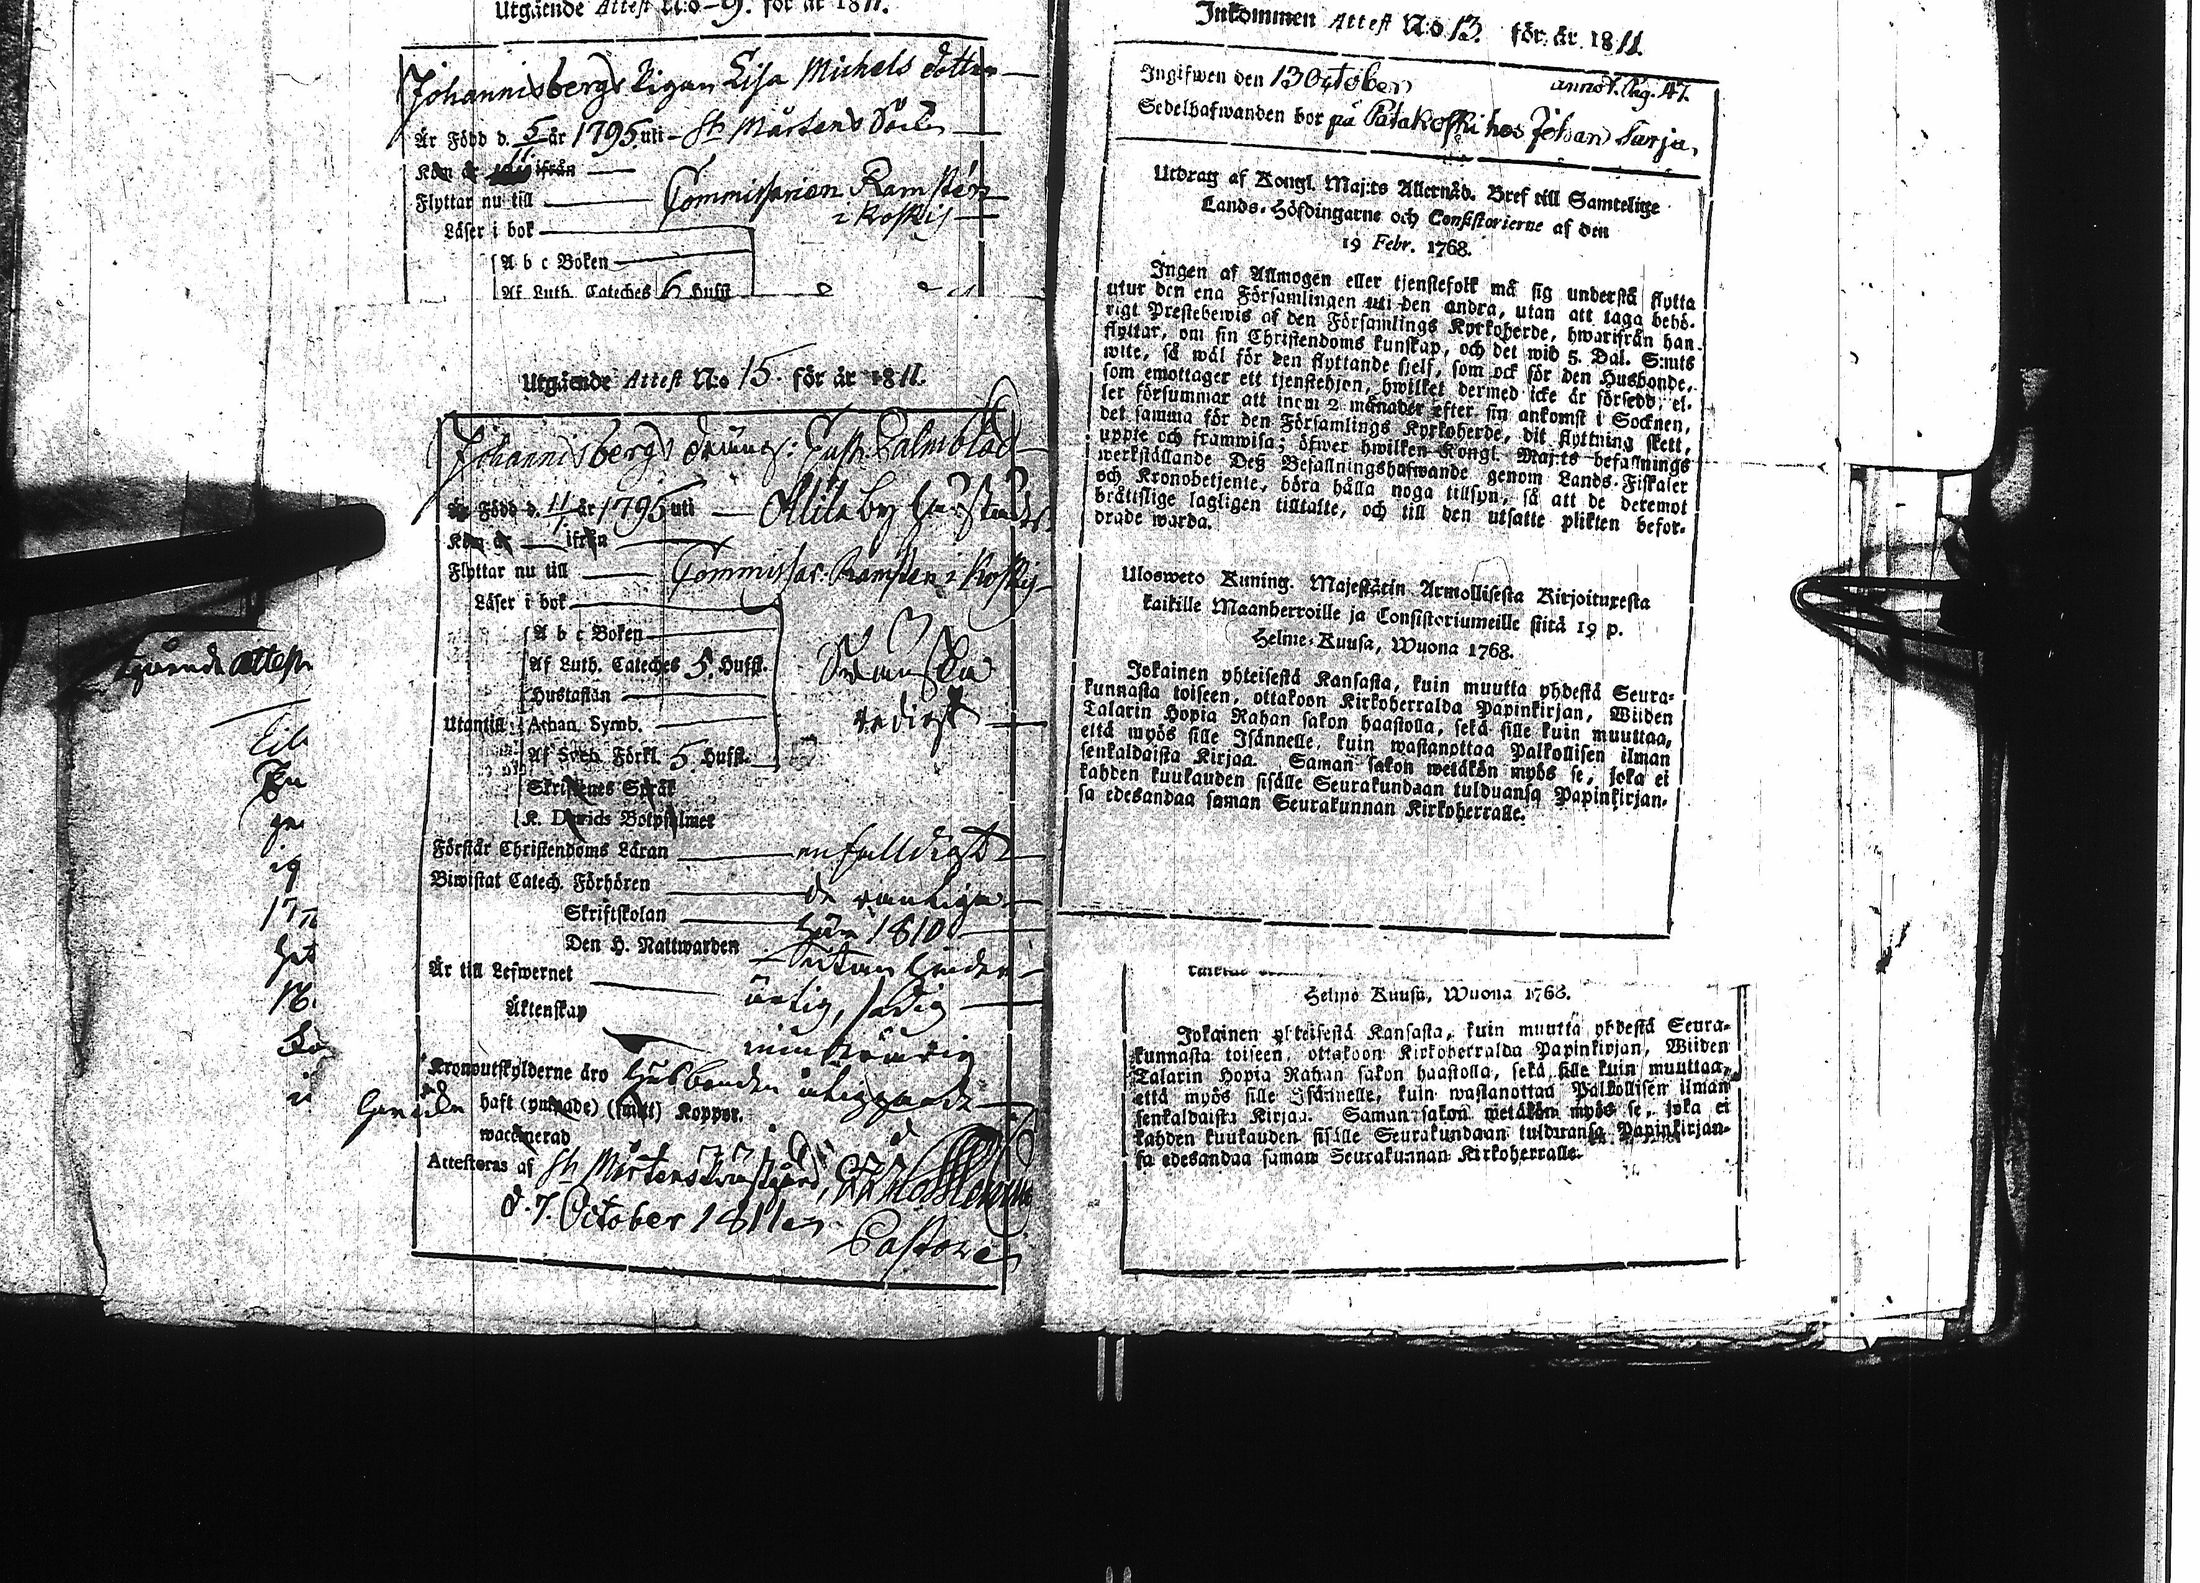 Utgående Attest N:o 9. för år 1811.
Johannisbergs Pigan Lisa Michels dotter
Är Född d. 5/11 år 1795 uti St Mårtens Sockn
Kom år ifrån
Flyttar nu till Commissarien Ramstén
i Koskis
Läser i bok
A b c Boken
Af Luth. Cateches 6 Hufst.
Utgående Attest N:o 15. för år 1811.
Johannisbergs dräng: Gust: Palmblad
Är Född d. 11/1 år 1795 uti Alitaby
Kom år ifrån
Flyttar nu till Commissar: Ramsten i Koskis
Läser i bok
A b c Boken
Af Luth. Cateches 5. Hufst. Svenska
Hustaflan
Utantill Athan. Symb. redigt
Af Sveb. Förkl. 5. Hufst.
Skriftenes Språk
K. Davids Botpsalmer
Förstår Christendoms Läran enfalldigt
Biwistat Catech. Förhören de vanliga
Skriftskolan här 1810
Den H. Nattwarden utan hinder
Är till Lefwernet ärlig, sedig
Äktenskap minderårig
Kronoutskylderne äro Husbonden åliggande
haft (yppade) (smitt) Koppor.
waccinerad
Attesteras af St Mårtens Prästgård,
d. 7. October 1811 af
Pastore
gående attest
Inkommen Attest N:o 13. för år 1811.
Ingifwen den 13 October annot. Pag. 47.
Sedelhafwanden bor på Patakoski hos Johan Tarja,
Utdrag af Kongl. Maj:ts Allernåd. Bref till Samtelige
Lands-Höfdingarne och Consistorierne af den
19 Febr. 1768.
Ingen af Allmogen eller tjenstefolk må sig understå flytta
utur den ena Församlingen uti den andra, utan att taga behö-
rigt Prestebewis af den Församlings Kyrkoherde, hwarifrån han
flyttar, om sin Christendoms kunskap, och det wid 5. Dal. S:mts
wite, så wäl för den flyttande sjelf, som ock för den Husbonde,
som emottager ett tjenstehjon, hwilket dermed icke är försedd; el-
ler försummar att inom 2 månader efter sin ankomst i Socknen,
det samma för den Församlings Kyrkoherde, dit flyttning skett,
uppte och framwisa; öfwer hwilken Kongl. Maj:ts befallnings
werkställande Deß Befallningshafwande genom Lands-Fiskaler
och Kronobetjente, böra hålla noga tillsyn, så att de deremot
brättslige lagligen tilltalte, och till den utsatte plikten befor-
drade warda.
Ulosweto Kuning. Majestätin Armollisesta Kirjoituxesta
kaikille Maanherroille ja Consistoriumeille siitä 19 p.
Helme-Kuusa, Wuona 1768.
Jokainen yhteisestä Kansasta, kuin muutta yhdestä Seura-
kunnasta toiseen, ottakoon Kirkoherralda Papinkirjan, Wiiden
Talarin Hopia Rahan sakon haastolla, sekä sille kuin muuttaa,
että myös sille Isännelle, kuin wastanottaa Palkollisen ilman
senkaldaista Kirjaa. Saman sakon wetäkön myös se, joka ei
kahden kuukauden sisälle Seurakundaan tulduansa Papinkirjan-
sa edesandaa saman Seurakunnan Kirkoherralle.
Helme Kuusa, Wuona 1768.
Jokainen yhteisestä Kansasta, kuin muutta yhdestä Seura-
kunnasta toiseen, ottakoon Kirkoherralda Papinkirjan, Wiiden
Talarin Hopia Rahan sakon haastolla, sekä sille kuin muuttaa,
että myös sille Isännelle, kuin wastanottaa Palkollisen ilman
senkaldaista Kirjaa. Saman sakon wetäkön myös se, joka ei
kahden kuukauden sisälle Seurakundaan tulduansa Papinkirjan-
sa edesandaa saman Seurakunnan Kirkoherralle.